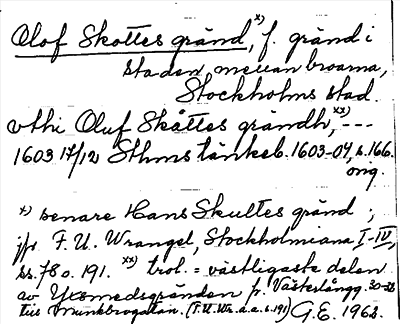 Olof Skottes gränd, x) f. gränd i
staden mellan broarna,
Stockholms stad.
vthi Oluf Skåttes grändh, xx) ---
1603 17/12 Sthms tänkeb. 1603-04, s. 166.
orig.
x) senare Hans Skultes gränd ;
jfr F. U. Wrangel, Stockholmiana I-IV,
ss. 78 o. 191. xx) trol. = västligaste delen
av Yxsmedsgränden fr. Västerlångg. 30-28
till Munkbrogatan. (F.U.Wr. a.a. s. 191) G.E. 1962.